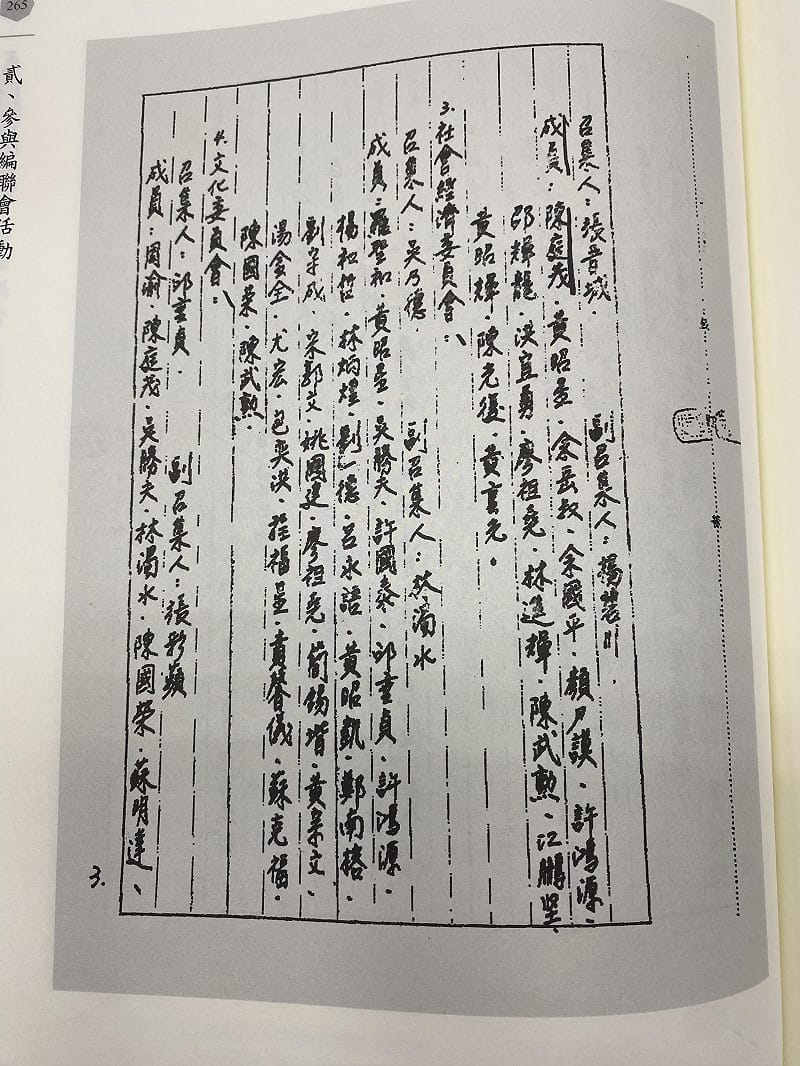 召集人：張晉城．副召集人：楊
成員：陳庭茂．黃昭星．余岳叔．余國平．顏尹謨．許鴻源．
邵輝龍．洪宜勇．廖祖堯．林進輝．陳武勳．江鵬堅．
黃昭輝．陳光復．黃富光。
3.社會經濟委員會：
召集人：吳乃德．副召集人：林濁水
成員：羅聖和．黃昭星．吳勝夫．許國泰．邱垂貞．許鴻源．
楊祖哲．林炳煌．劉一德．呂永語．黃昭凱．鄭南榕．
劉守成．宋郭艾．姚國建．廖祖堯．簡錫堦．黃崇文．
湯金全．尤宏．包奕洪．福星．黃聲儀．蘇克福．
陳國榮．陳武勳．
4.文化委員會：
召集人：邱垂貞．副召集人：張彩蘋
成員：周渝．陳庭茂．吳勝夫．林濁水．陳國榮．蘇明達、
3.
265
貳、參與編聯會活動